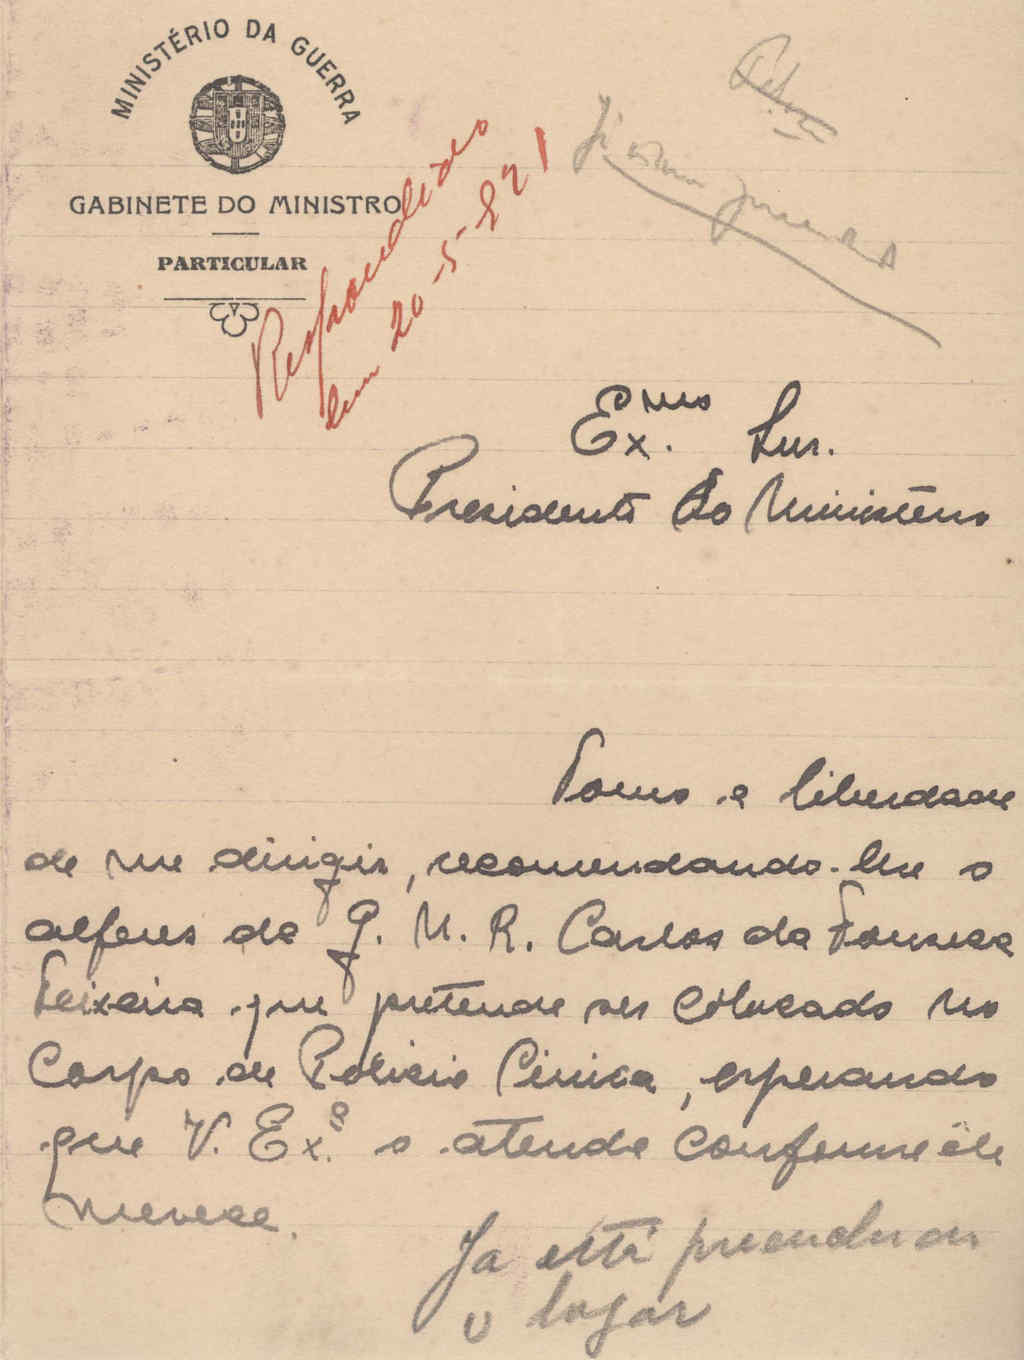 MINISTÉRIO DA GUERRA
GABINETE DO MINISTRO
PARTICULAR
Respondido
em 20-5-921
Exmo. Snr.
Presidente do Ministério
Tomo a liberdade
de me dirigir, recomendando-lhe o
alferes da G. N. R. Carlos da Fonseca
Teixeira que pretende ser colocado no
Corpo de Policia Civica, esperando
que V. Exª. o atenda conforme êle
merece.
Ja está preenchido
o logar